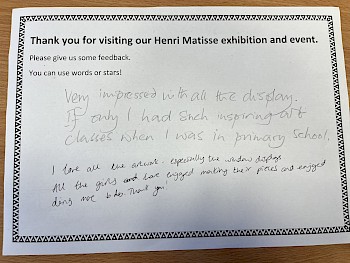 Thank you for visiting our Henri Matisse exhibition and event.
Please give us some feedback.
You can use words or stars!
Very impressed with all the display.
If only I had such inspiring art
classes when I was in primary school.
I love all the artwork. especially the window displays
All the girls and have enjoyed making their pieces and enjoyed
doing more to do. Thank you!